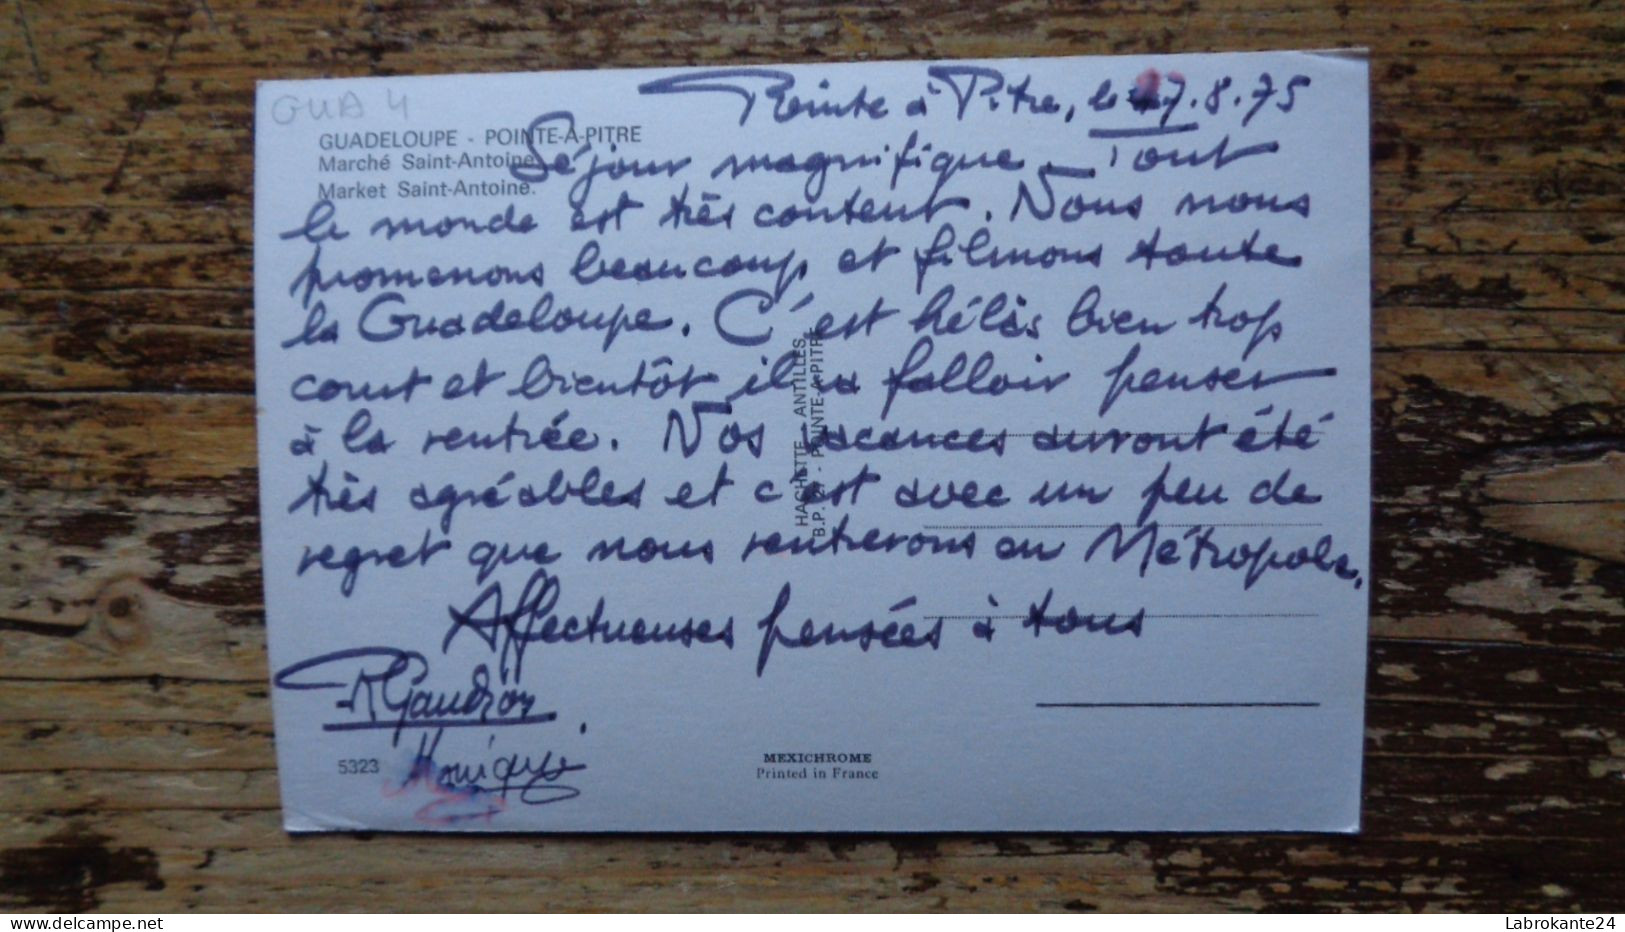 GUA 4
Pointe à Pitre, le 17.8.75
GUADELOUPE - POINTE-A-PITRE
Marché Saint-Antoine.
Market Saint-Antoine.
Séjour magnifique - Tout
le monde est très content. Nous nous
promenons beaucoup et filmons toute
la Guadeloupe. C'est hélàs bien trop
court et bientôt il va falloir penser
à la rentrée. Nos vacances auront été
très agréables et c'est avec un peu de
regret que nous rentrerons en Métropole.
Affectueuses pensées à tous
Gaudron
Monique
HACHETTE - ANTILLES
B.P. - POINTE-A-PITRE
5323
MEXICHROME
Printed in France
delcampe.net
Labrokante24